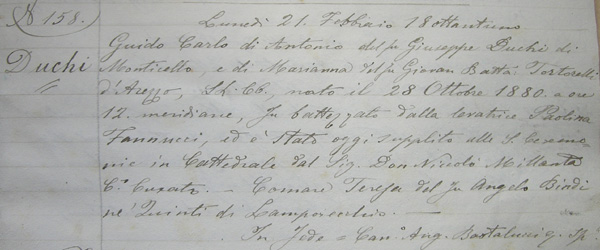 N 158.
Lunedì 21. Febbraio 18ottantuno
Duchi
Guido Carlo di Antonio del fu Giuseppe Duchi di
Monticello, e di Marianna del fu Giovan Batta. Tortorelli
d'Arezzo, nato il 28 Ottobre 1880. a ore
12. meridiane, fu battezzato dalla levatrice Paolina
Fannucci, ed è stato oggi supplito alle S. Ceremo-
nie in Cattedrale dal Sig. Don Niccolò Millanta
Co. Curato. — Comare Teresa del fu Angelo Bindi
ne' Quinti di Lamporecchio. —
In fede = Can.° Ang. Bartalucci